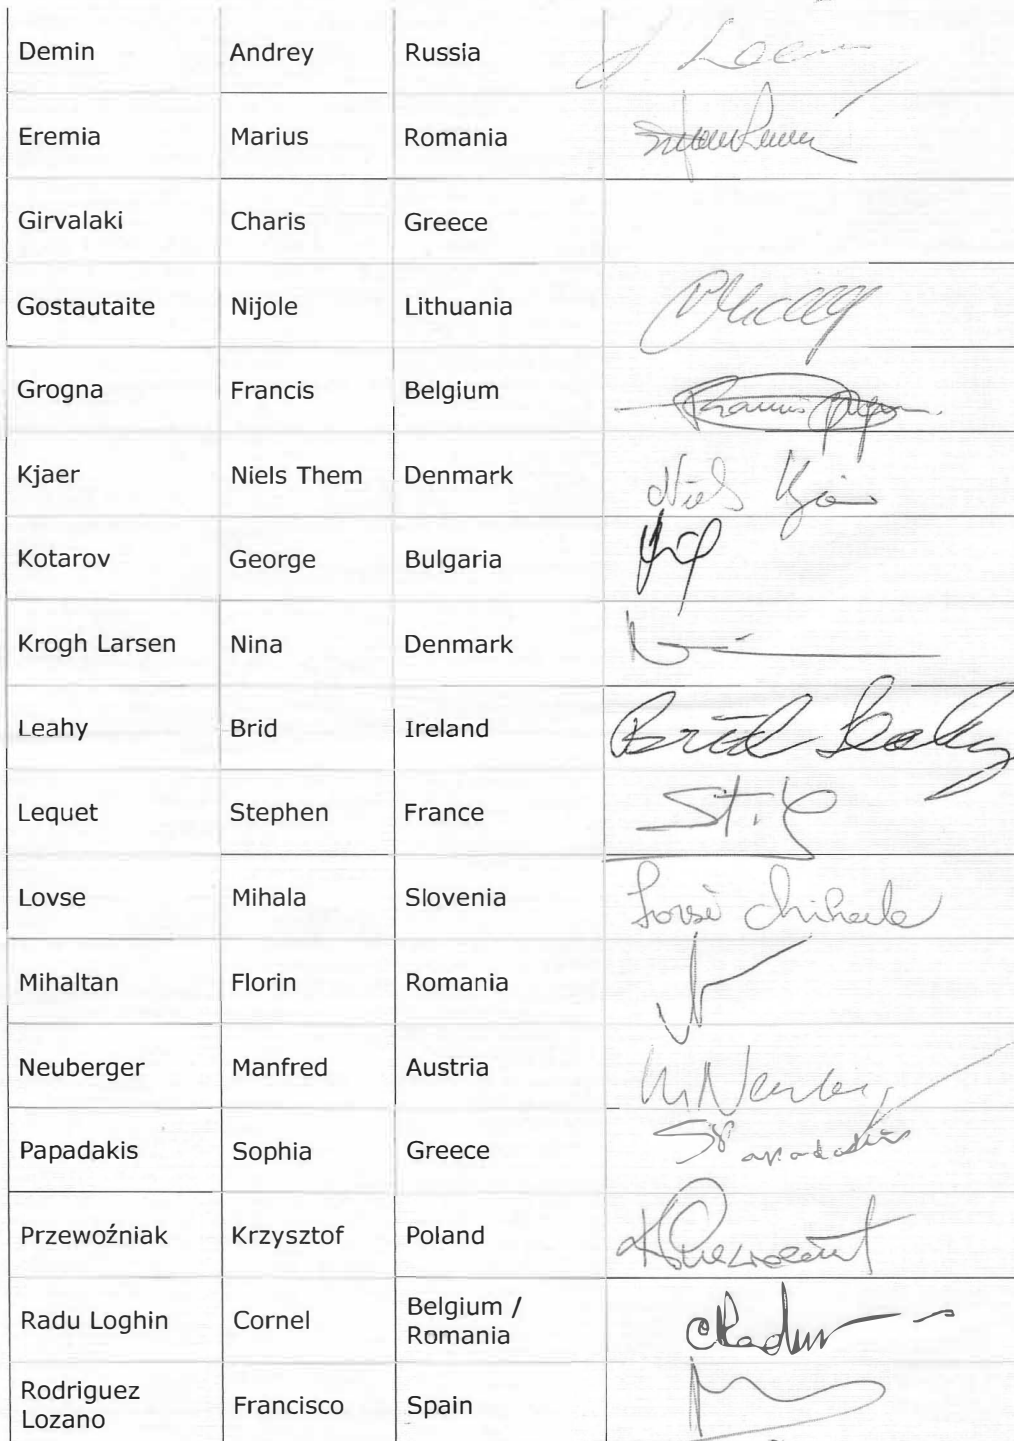 Demin Andrey Russia
Eremia Marius Romania
Girvalaki Charis Greece
Gostautaite Nijole Lithuania
Grogna Francis Belgium
Kjaer Niels Them Denmark Niels Kjær
Kotarov George Bulgaria
Krogh Larsen Nina Denmark
Leahy Brid Ireland Bríd Leahy
Lequet Stephen France
Lovse Mihala Slovenia
Mihaltan Florin Romania
Neuberger Manfred Austria
Papadakis Sophia Greece
Przewoźniak Krzysztof Poland
Radu Loghin Cornel Belgium /
Romania
Rodriguez
Lozano Francisco Spain